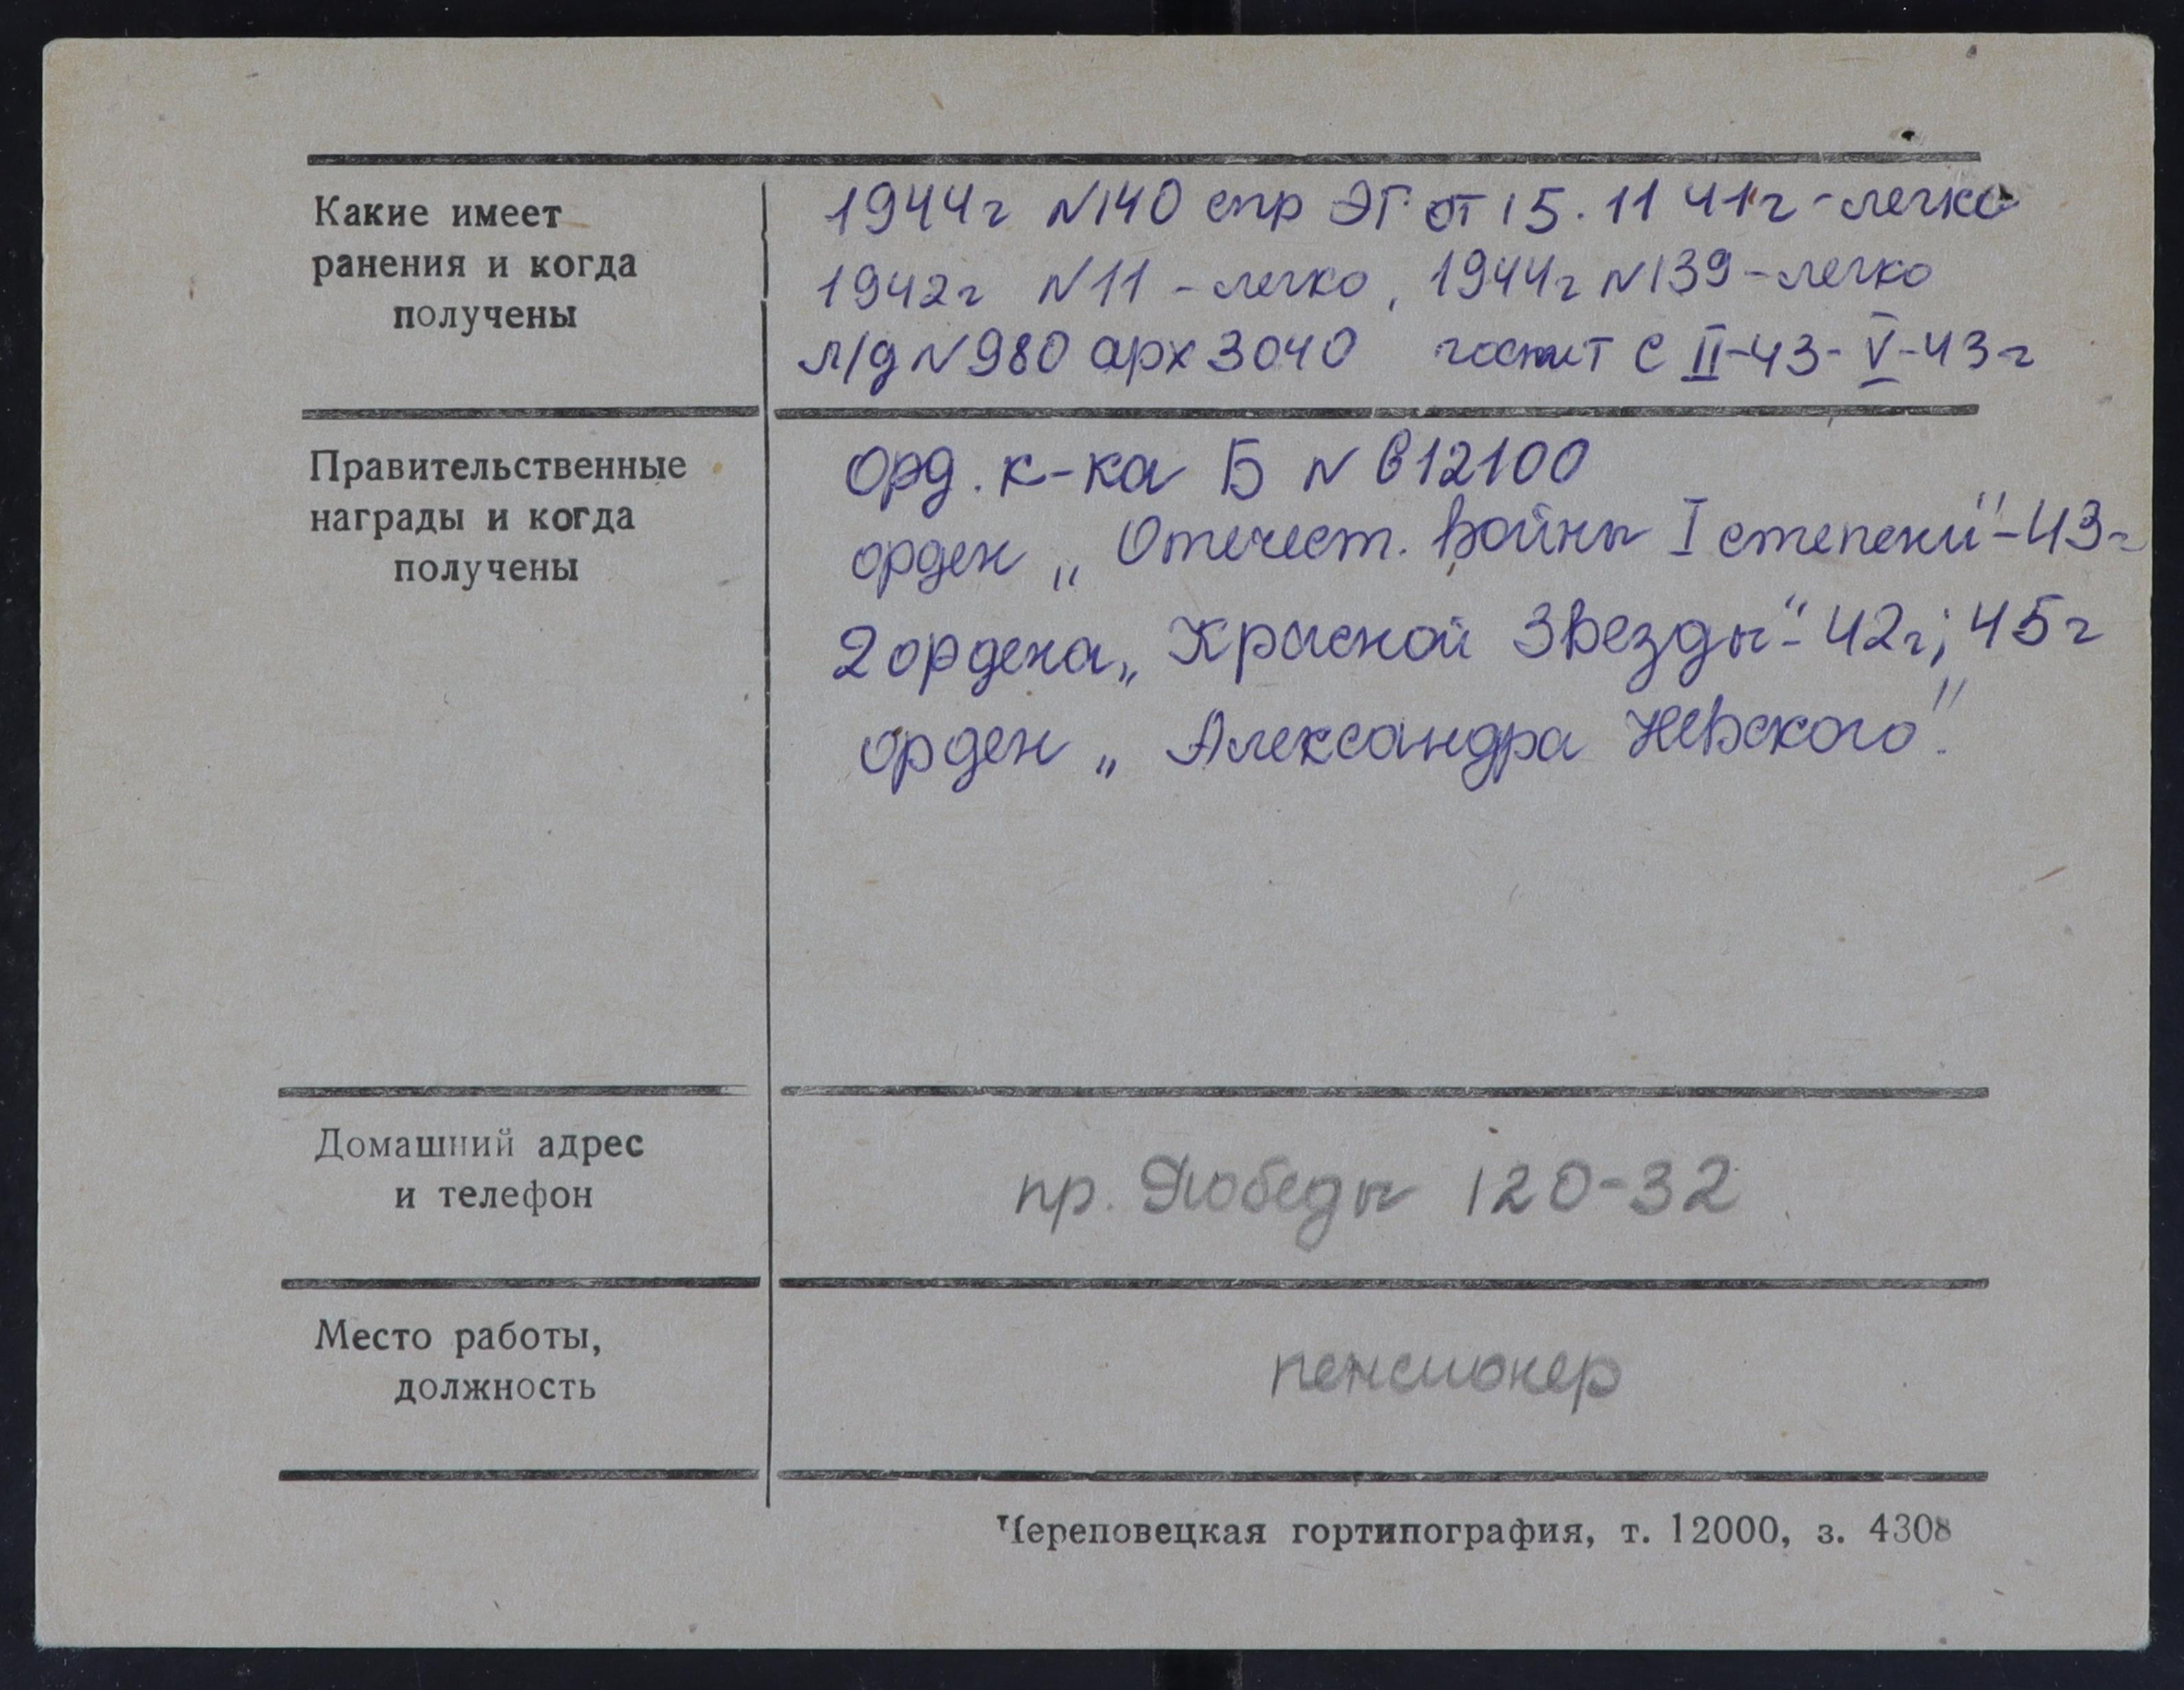 Какие имеет
ранения и когда
получены
1944г N140 спр ЭГ от 15.11 41г - легко
1942г N11 - легко, 1944г N139 - легко
л/д N980 арх 3040 госпит с II-43- V-43г
Правительственные
награды и когда
получены
Орд. к-ка Б N 612100
орден „Отечест. Войны I степени" - 43г
2 ордена „Красной Звезды" - 42г; 45г
орден „Александра Невского".
Домашний адрес
и телефон
пр. Победы 120-32
Место работы,
должность
пенсионер
Череповецкая гортипография, т. 12000, з. 4308